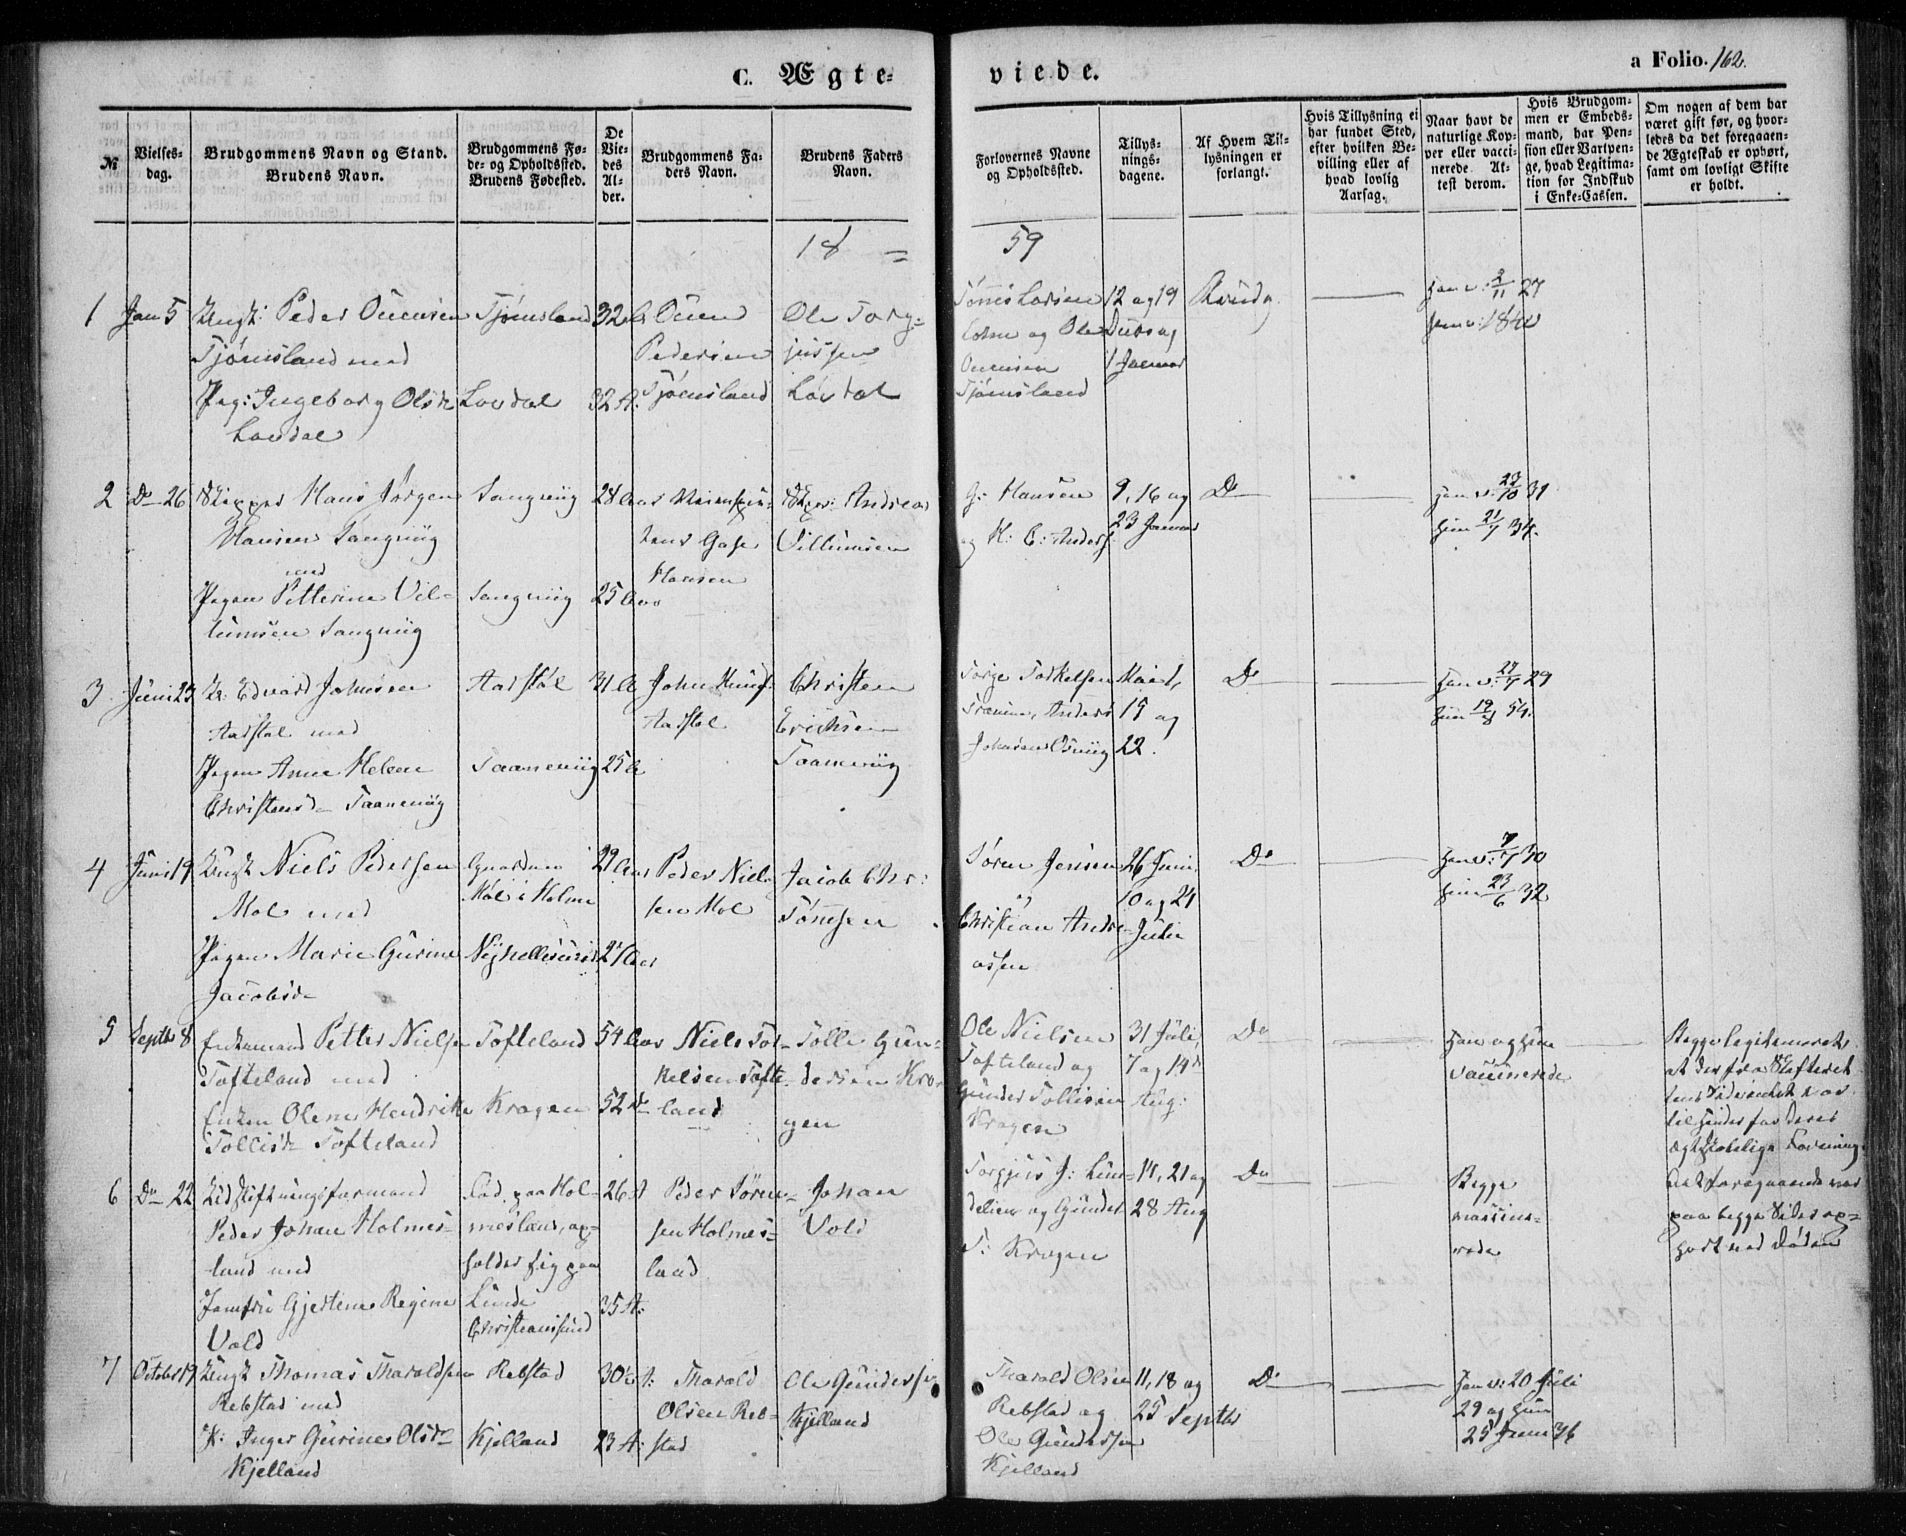 C. Ægte-
viede.
a Folio. 162.
№
Vielses-
dag.
Brudgommens Navn og Stand.
Brudens Navn.
Brudgommens Fø-
de- og Opholdssted.
Brudens Fødested.
De
Vie-
des
Al-
der.
Brudgommens Fa-
ders Navn.
Brudens Faders
Navn.
Forlovernes Navne
og Opholdssted.
Tillys-
nings-
dagene.
Af Hvem Til-
lysningen er
forlangt.
Hvis Tillysning ei
har fundet Sted,
efter hvilken Be-
villing eller af
hvad lovlig
Aarsag.
Naar havt de
naturlige Kop-
per eller vacci-
nerede. At-
test derom.
Hvis Brudgom-
men er Embeds-
mand, har Pen-
sion eller Vartpen-
ge, hvad Legitima-
tion for Indskud
i Enke-Cassen.
Om nogen af dem har
været gift før, og hvor-
ledes da det foregaaen-
de Ægteskab er ophørt,
samt om lovligt Skifte
er holdt.
18 = 59
1 Jan 5
Ungk: Peder Ouensen
Tjømsland med
Pig: Ingeborg Olsdr
Løvdal
Tjømsland
Løvdal
32
32 A:
Ouen
Pedersen
Tjømsland
Ole Torg-
jussen
Løvdal
Tønnes Larsen
og Ole
Ouensen
Tjømsland
12 og 19
1 Januar
2/11 27
2 Do 26
Skipper Hans Jørgen
Hansen Sangviig
med
Pigen Petterine Vil-
lumsen Sangviig
Sangviig
Sangviig
28 Aar
25 Aar
Hansen
Skipr: Andreas
Villumsen
G: Hansen
og H: C: Anders:
9, 16 og
23 Januar
Do
Han v: 23/10 31
Hun 21/7 34.
3 Juni 23
Edvard Johnsen
Aarstøl med
Pigen Anne Helene
Christensdr Taaneviig
Aarstøl
Taaneviig
31 A
25 A
John
Aarstøl
Christen
Erichsen
Taaneviig
Torge Torkelsen
Anders
Johnsen
15 og
22.
Do
Han v: 29
Hun 19/8 34.
4 Juni 19
Ungk Niels Pedersen
Møl med
Pigen Marie Gurine
Jacobsdr
Møl i Holme
29 Aar
27 Aar
Peder Niel-
sen Møl
Jacob Chr:
Tønnsen
Søren Jensen
Christian Andre-
assen
26 Juni,
10 og 24
Julii
Do
Han v: 7/7 30
Hun 23/6 32
5 Septb 8
Enkemand Petter Nielsen
Tofteland med
Enken Olene Hendrikke
Tollisdr Tofteland
Tofteland
Kragen
54 Aar
52 Do
Niels Tor-
kelsen Tofte-
land
Tolle Gun-
dersen Kra-
gen
Ole Nielsen
Tofteland og
Gunder Tollisen
Kragen
31 Juli,
7 og 14de
Aug:
Do
Han og Hun
vaccinerede
Begge legitimerede
at der fra Skifteret-
tens Side intet var
til Hinder for deres
ægteskabelige Forening.
Det foregaaende var
paa begge Sider op-
hørt ved Døden
6 Do 22
Peder Johan Holmes-
land med
Jomfru Gjertine Regine
Vold
Fød paa Hol-
mesland, op-
holder sig paa
Lunde
Christiansund
26 A
35 A:
Peder Søren-
sen Holmes-
land
Johan
Vold
Torgjus J: Lun-
delien og Gunder
T: Kragen
14, 21 og
28 Aug
Do
Begge
vaccine-
rede
7 October 19
Ungk Thomas Tharaldsen
Rebstad med
P: Inger Gurine Olsdr
Kjelland
Rebstad
Kjelland
30
23 A:
Tharald
Olsen Reb-
stad
Ole Gundersen
Kjelland
Tharald Olsen
Rebstad og
Ole Gundersen
Kjelland
11, 18 og
25 Septbr
Do
Han v: 20 Juli
29 og Hun
25 Juni 36